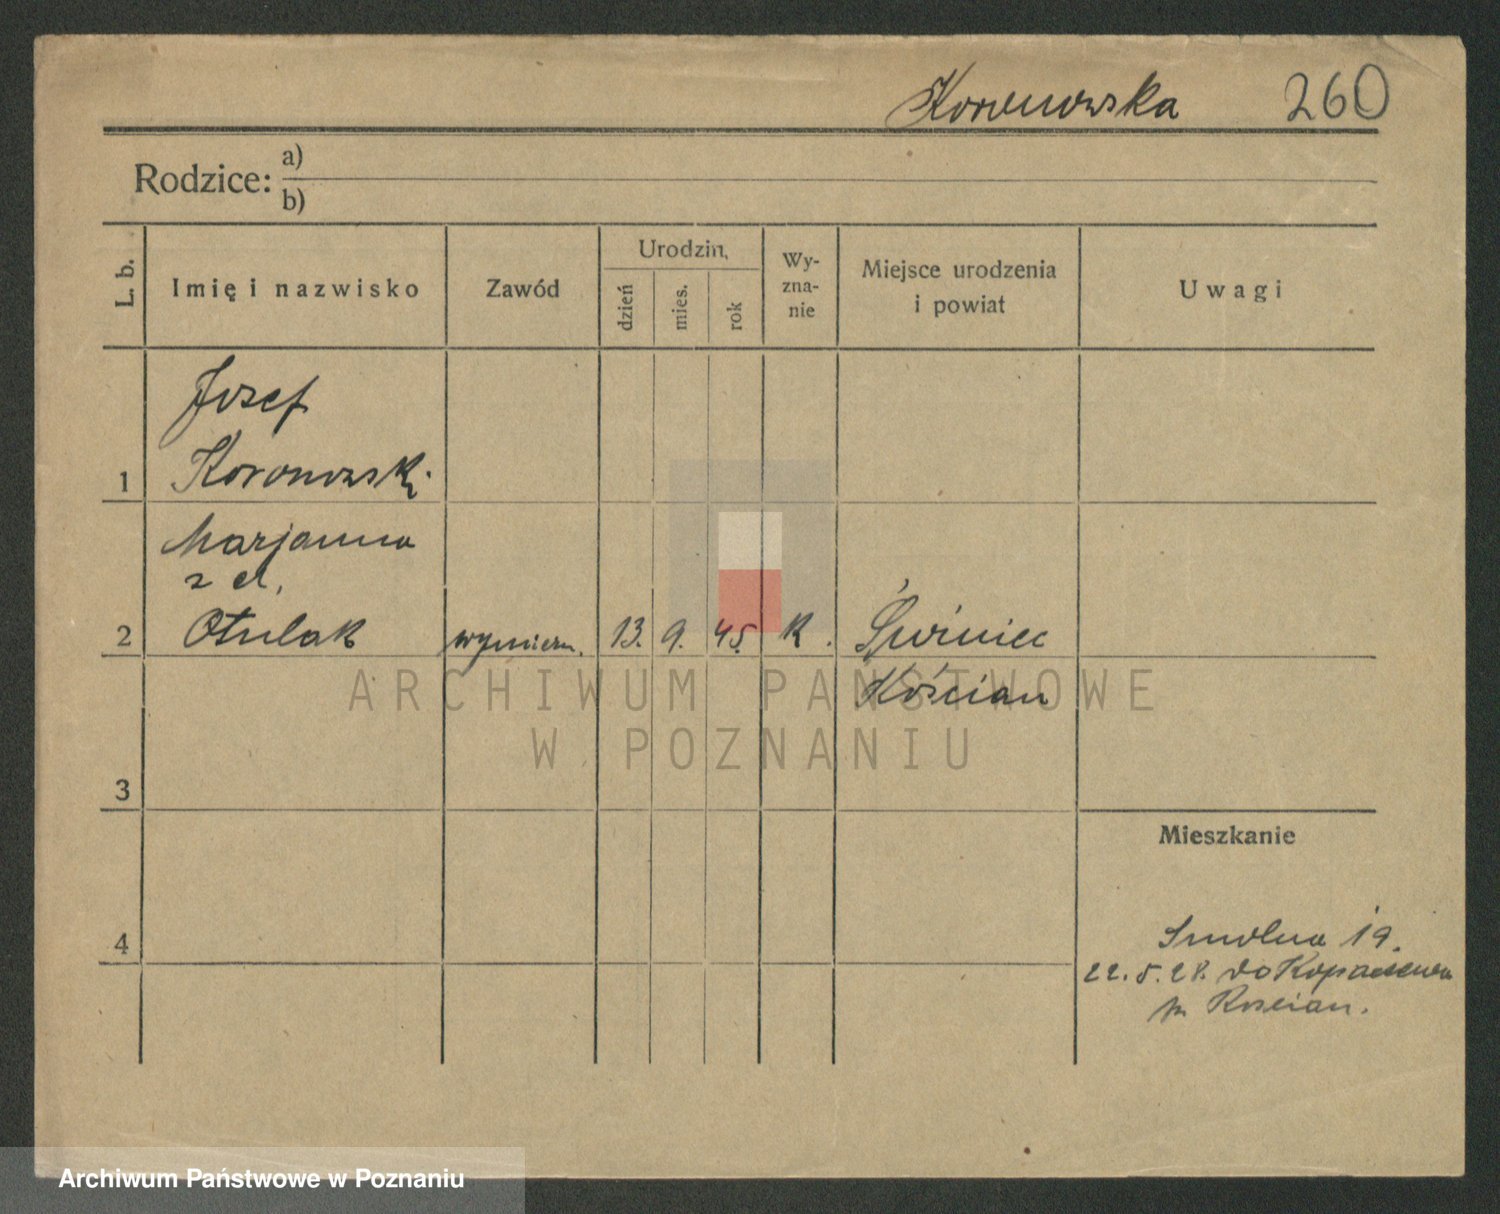 Koronowska 260
Rodzice: a)
b)
L. b.
Imię i nazwisko
Zawód
Urodzin,
dzień
mies.
rok
Wy-
zna-
nie
Miejsce urodzenia
i powiat
Uwagi
Jozef
1 Koronowski
Marjanna
z d.
2 Otulak wymiern. 13. 9. 45. k. Świniec
Kościan
ARCHIWUM PAŃSTWOWE
W POZNANIU
3
Mieszkanie
4 Smolna 19.
22. 5. 28. do
p. Koscian.
Archiwum Państwowe w Poznaniu